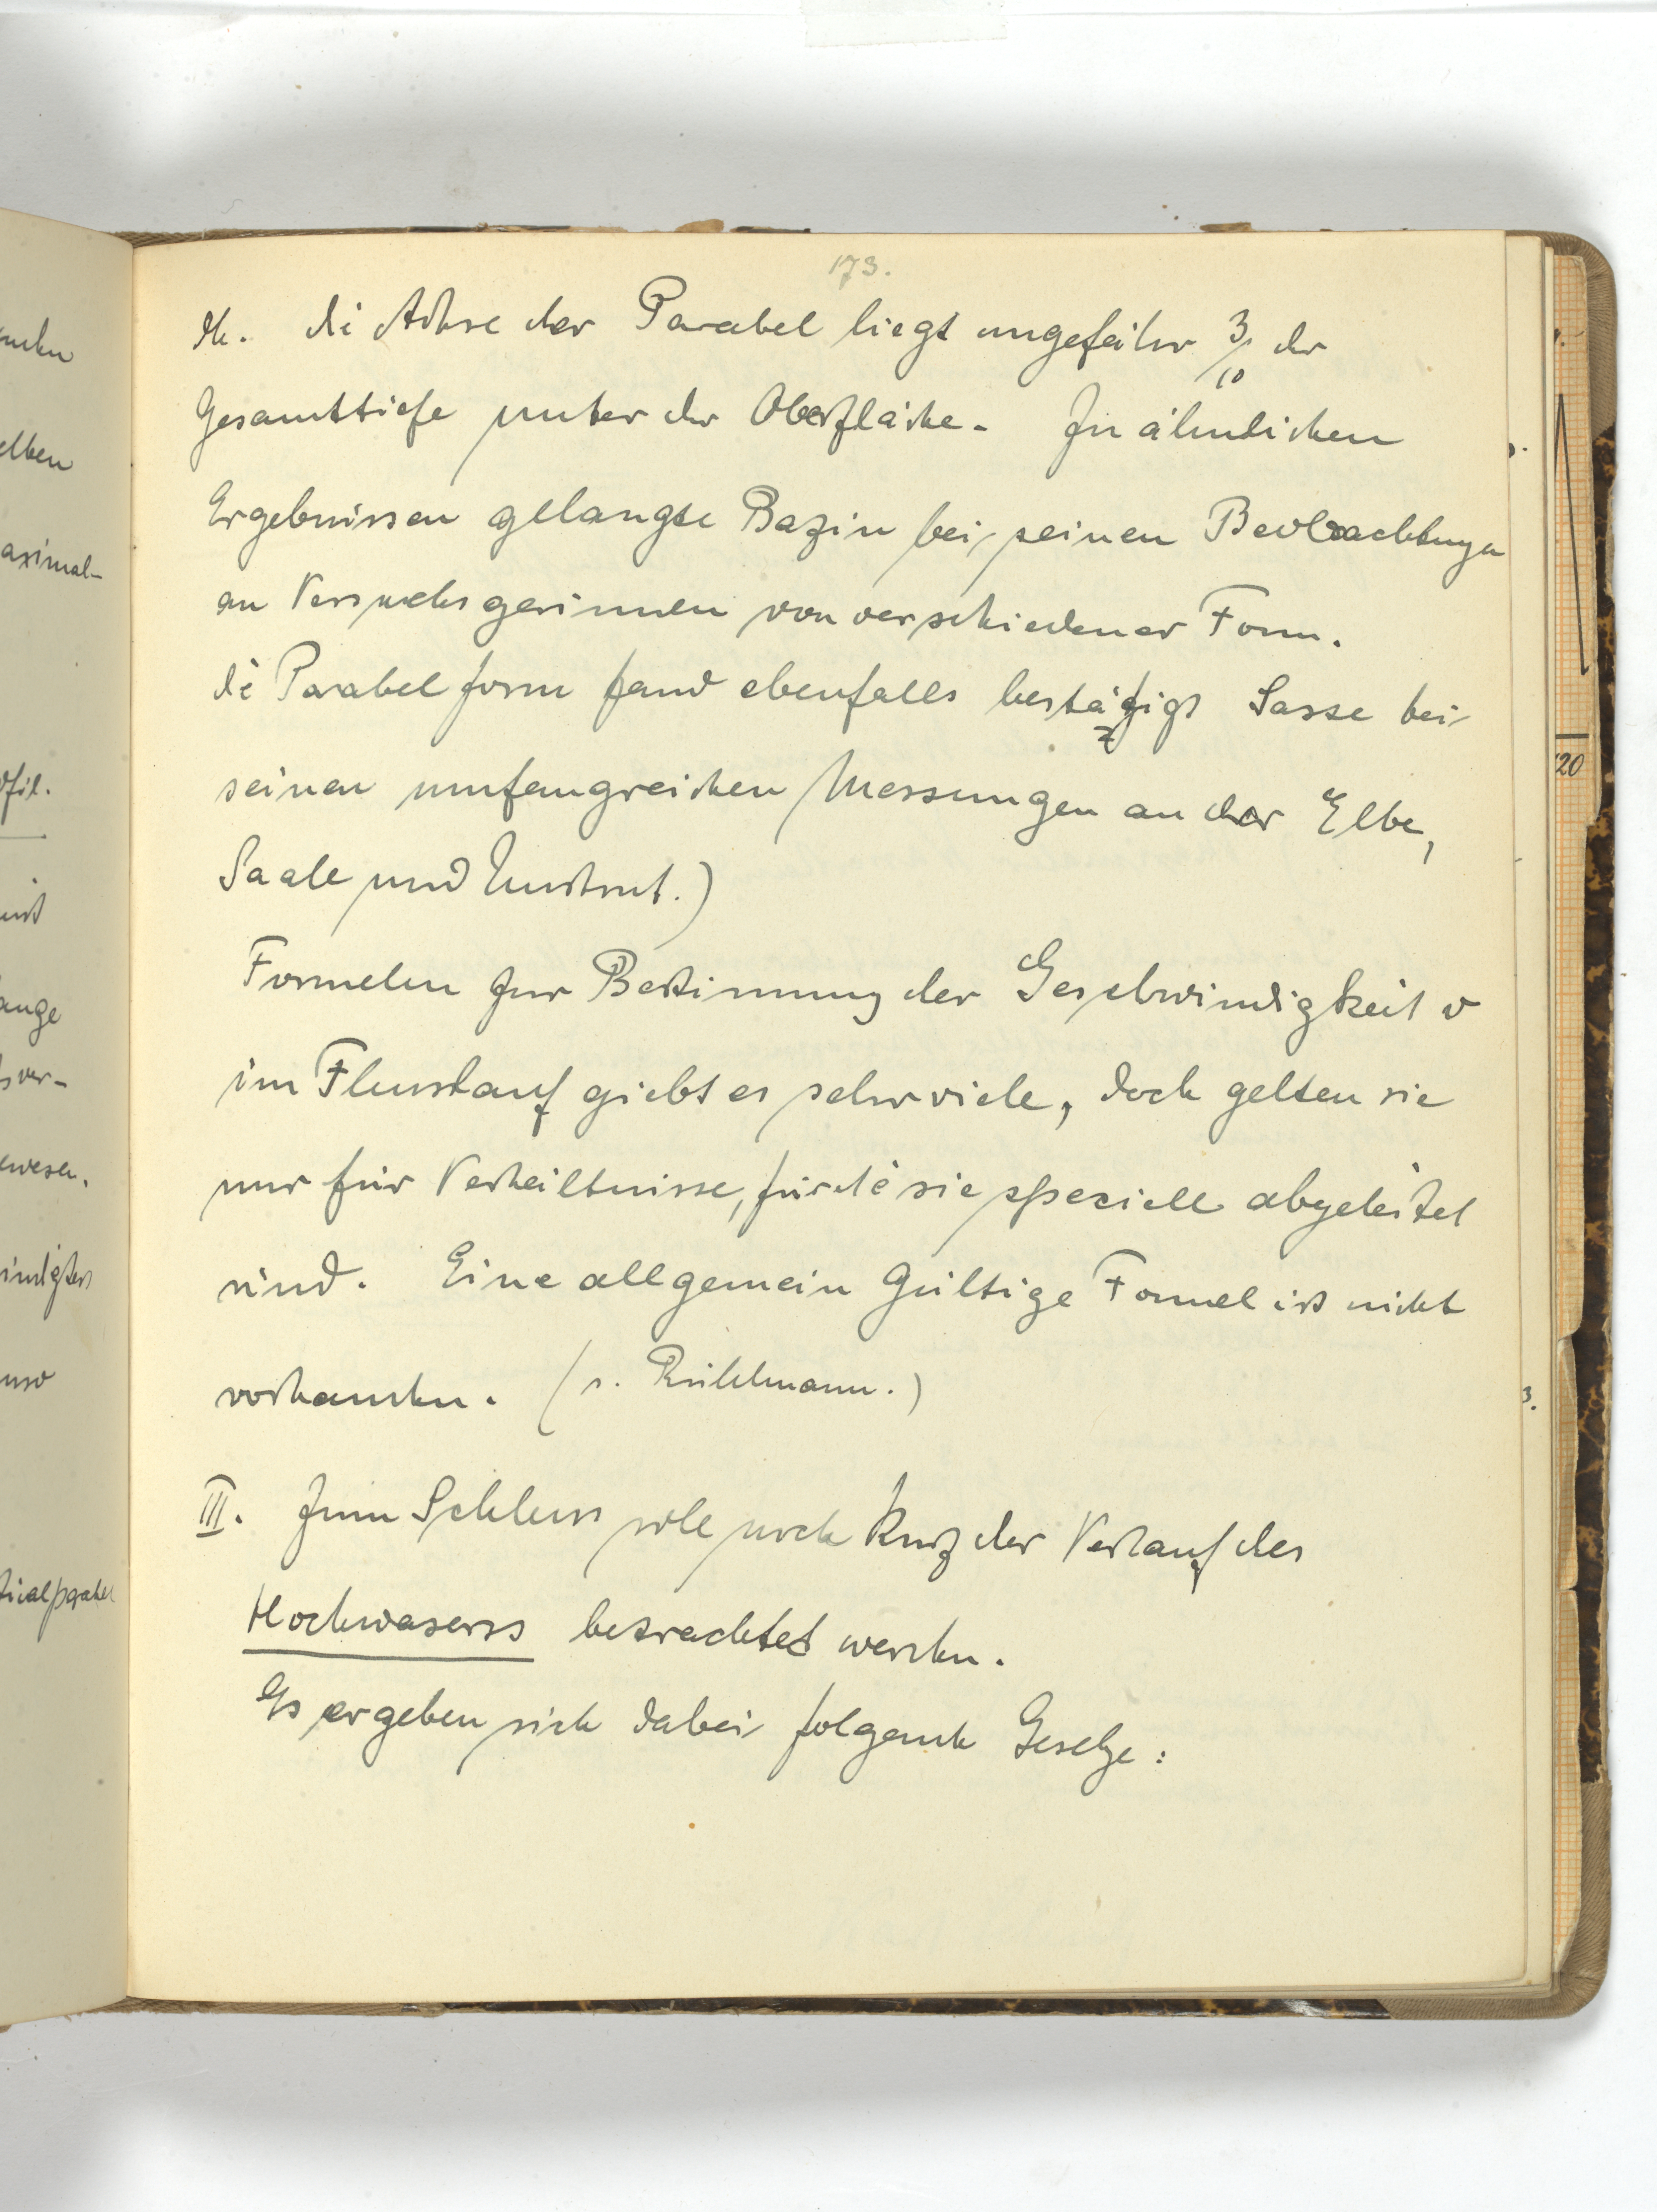 173.
die Achse der Parabel liegt ungefähr 3/10 der
Gesamttiefe unter der Oberfläche. Zu ähnlichen
Ergebnissen gelangte Bazin bei seinen Beobachtungen
an Versuchsgerinnen von verschiedener Form.
die Parabelform fand ebenfalls bestätigt Sasse bei
seinen umfangreichen Messungen an der Elbe,
Saale und Unstrut.)
Formeln zur Bestimmung der Geschwindigkeit v
im Flusslauf giebt es sehr viele, doch gelten sie
nur für Verhältnisse, für die sie speciell abgeleitet
sind. Eine allgemein Gültige Formel ist nicht
vorhanden. (s. Rühlmann.)
III. Zum Schluss soll noch kurz der Verlauf des
Hochwassers betrachtet werden.
Es ergeben sich dabei folgende Gesetze:
elben
aximal-
ofil.
ist
ange
sver-
ewesen.
und
ticalparabel
20
3.